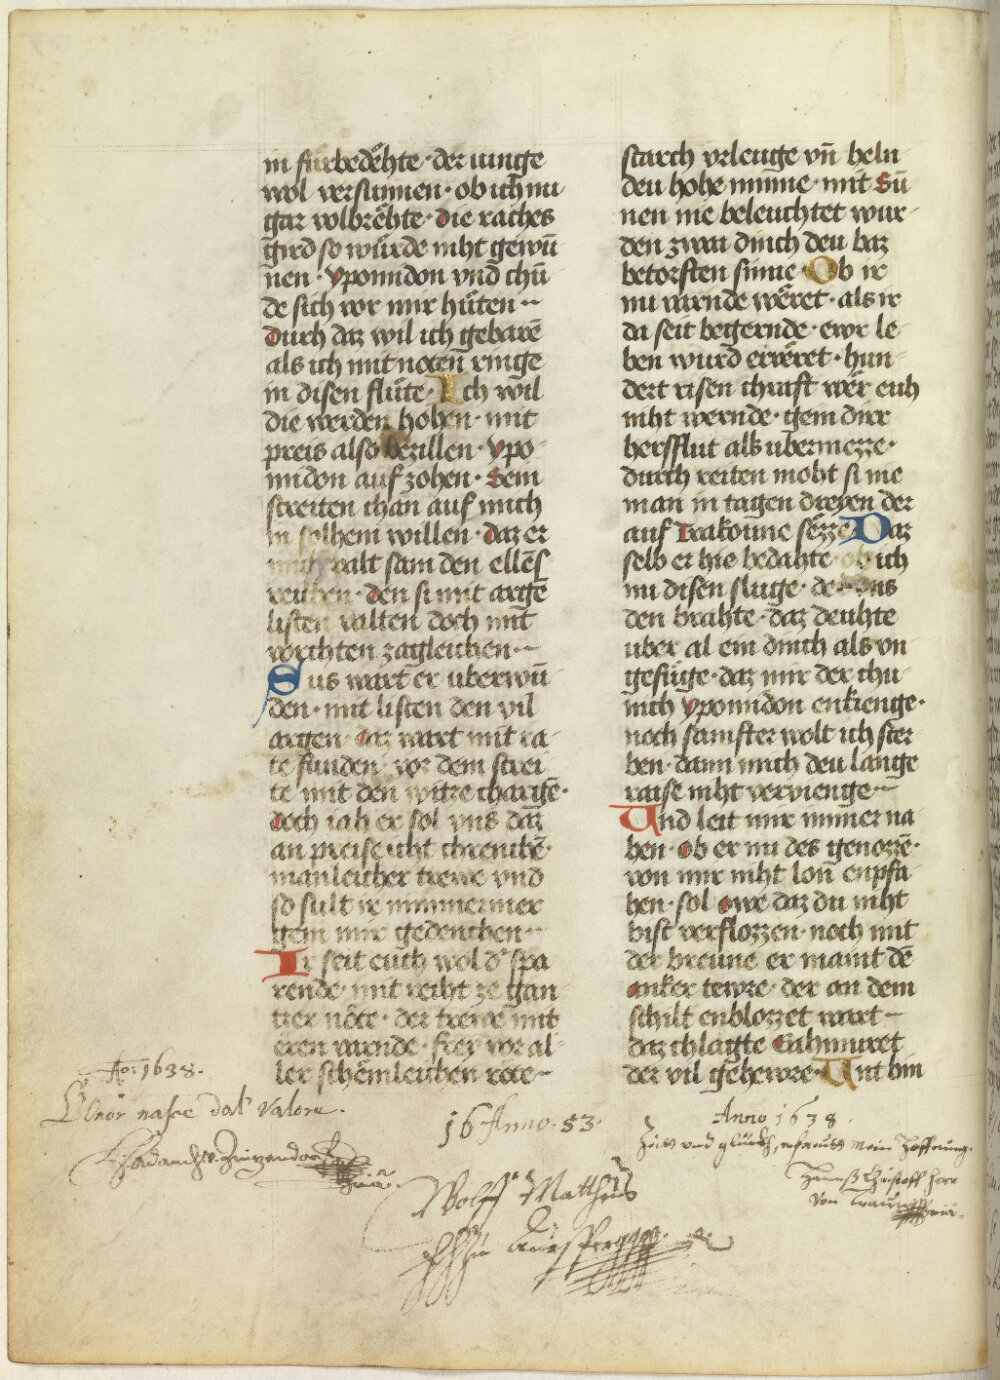 in fúrbedêhte · der iunge
wol versinnen · ob ich nu
gar volbrêhte · die raches
gird so wúrde niht gewū
nen · yponidon vnd chū
de sich vor mir hûten ··
durch daz wil ich gebarē
als ich mit noten ringe
in disen flûte · Ich wil
die werden hohen · mit
preis also bezillen · ypo
nidon auf zohen · Sein
streiten chan auf mich
in solhem willen · daz er
valt sam den ellēs
reichen · den si mit argē
listen valten doch mit
vorchten zagleichen ··
Sus wart er uberwū
den · mit listen den vil
argen · daz wart mit ra
te funden · vor dem strei
te mit den witze chargē ·
doch iah er sol vns daz
an preise iht chrenchē ·
manleicher trewe vnd
so sult ir nimmermer
gein mir gedenchen ··
Ir seit euch wol d' spa
rende · mit reiht ze gan
tzer nôte · der trewe mit
eren varnde · frey vor al
ler schêmleichen rôte ··
starch vrleuge vn̄ heln
deu hohe minne · mit Sū
nen nie beleuchtet wur
den zwai dinch deu baz
betorsten sinne · Ob ir
nu varnde wêret · als ir
da seit begernde · ewr le
ben wurd ervêret · hun
dert risen chraft wêr euh
niht wernde · gein dirr
hersflut als ubermezze ·
durch reiten moht si nie
man in tagen dreyen der
auf Trakoune sêzze Daz
selb er hie bedahte · ob ich
nu disen sluge · de
den brahte · daz deuhte
uber al ein dinch als vn
gefúge · daz mir der chu
nich yponidon enkienge ·
noch samfter wolt ich ster
ben · dann mich deu lange
raise niht vervienge ··
Und leit mir immer na
hen · ob er nu des genozzē ·
von mir niht lon̄ enpfa
hen · sol owe daz du niht
bist verflozzen · noch mit
der breune er maint dē
anker tewre · der an dem
schilt enblozzet wart ··
daz chlagte Gahmuret
der vil gehewre · Unt bin
Ao: 1638.
L'Onor nasce dal Valore.
16 Anno. 53.
Wolff Matthæus
Anno 1638.
und glückh, mein Hoffnung.
Christoff Herr
von